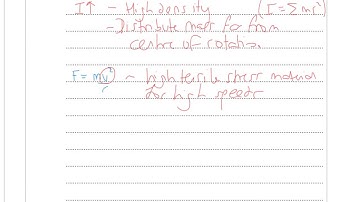 I↑ - High density (I = Σmr²)
- Distribute mass far from
centre of rotation.
F = mv²/r ~ high tensile stress material
for high speeds